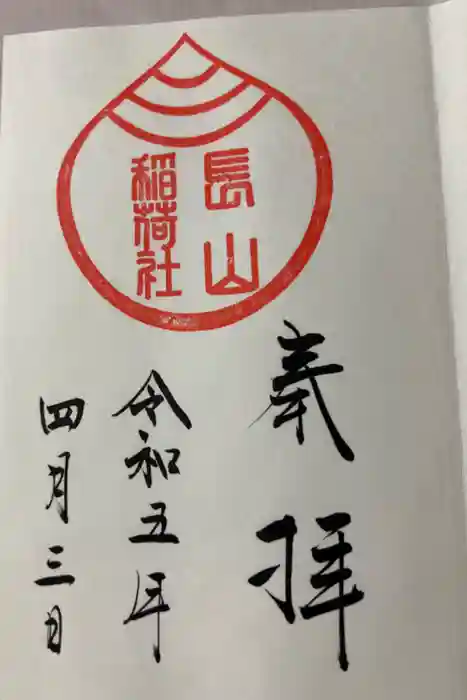 長山
稲荷社
奉拝
令和五年
四月三日